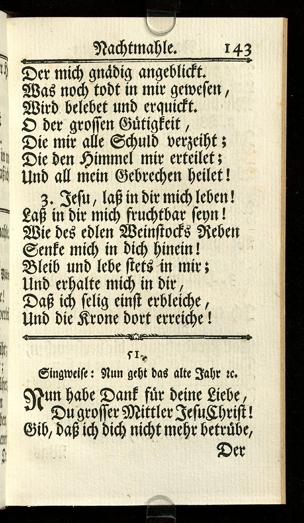 Nachtmahle. 143
Der mich gnädig angeblickt.
Was noch todt in mir gewesen,
Wird belebet und erquickt.
O der grossen Gütigkeit,
Die mir alle Schuld verzeiht;
Die den Himmel mir erteilet;
Und all mein Gebrechen heilet!
3. Jesu, laß in dir mich leben!
Laß in dir mich fruchtbar seyn!
Wie des edlen Weinstocks Reben
Senke mich in dich hinein!
Bleib und lebe stets in mir;
Und erhalte mich in dir,
Daß ich selig einst erbleiche,
Und die Krone dort erreiche!
51.
Singweise: Nun geht das alte Jahr ꝛc.
Nun habe Dank für deine Liebe,
Du grosser Mittler JesuChrist!
Gib, daß ich dich nicht mehr betrübe,
Der